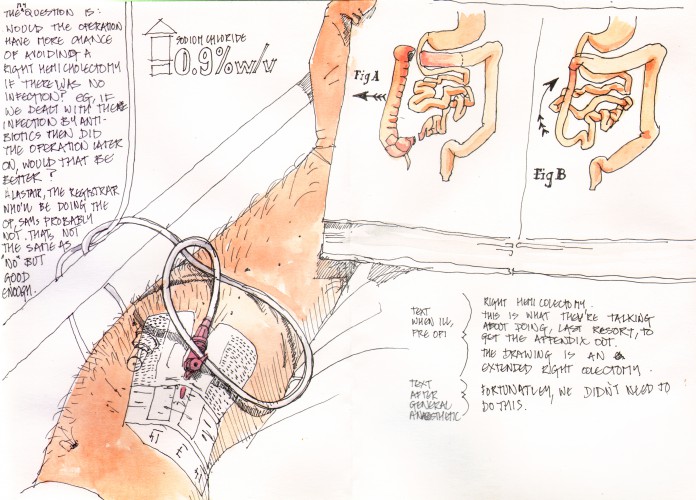 THE QUESTION IS:
WOULD THE OPERATION
HAVE MORE CHANCE
OF AVOIDING A
RIGHT HEMICHOLECTOMY
IF THERE WAS NO
INFECTION? EG, IF
WE DEALT WITH THE
INFECTION BY ANTI-
BIOTICS THEN DID
THE OPERATION LATER
ON, WOULD THAT BE
BETTER?
ALASTAIR, THE REGISTRAR
WHO'LL BE DOING THE
OP, SAYS PROBABLY
NOT. THAT'S NOT
THE SAME AS
"NO" BUT
GOOD
ENOUGH.
SODIUM CHLORIDE
0.9% w/v
Fig A
Fig B
TEXT
WHEN ILL,
PRE OP!
RIGHT HEMICOLECTOMY.
THIS IS WHAT THEY'RE TALKING
ABOUT DOING, LAST RESORT, TO
GET THE APPENDIX OUT.
THE DRAWING IS AN
EXTENDED RIGHT COLECTOMY.
TEXT
AFTER
GENERAL
ANAESTHETIC
FORTUNATLEY, WE DIDN'T NEED TO
DO THIS.